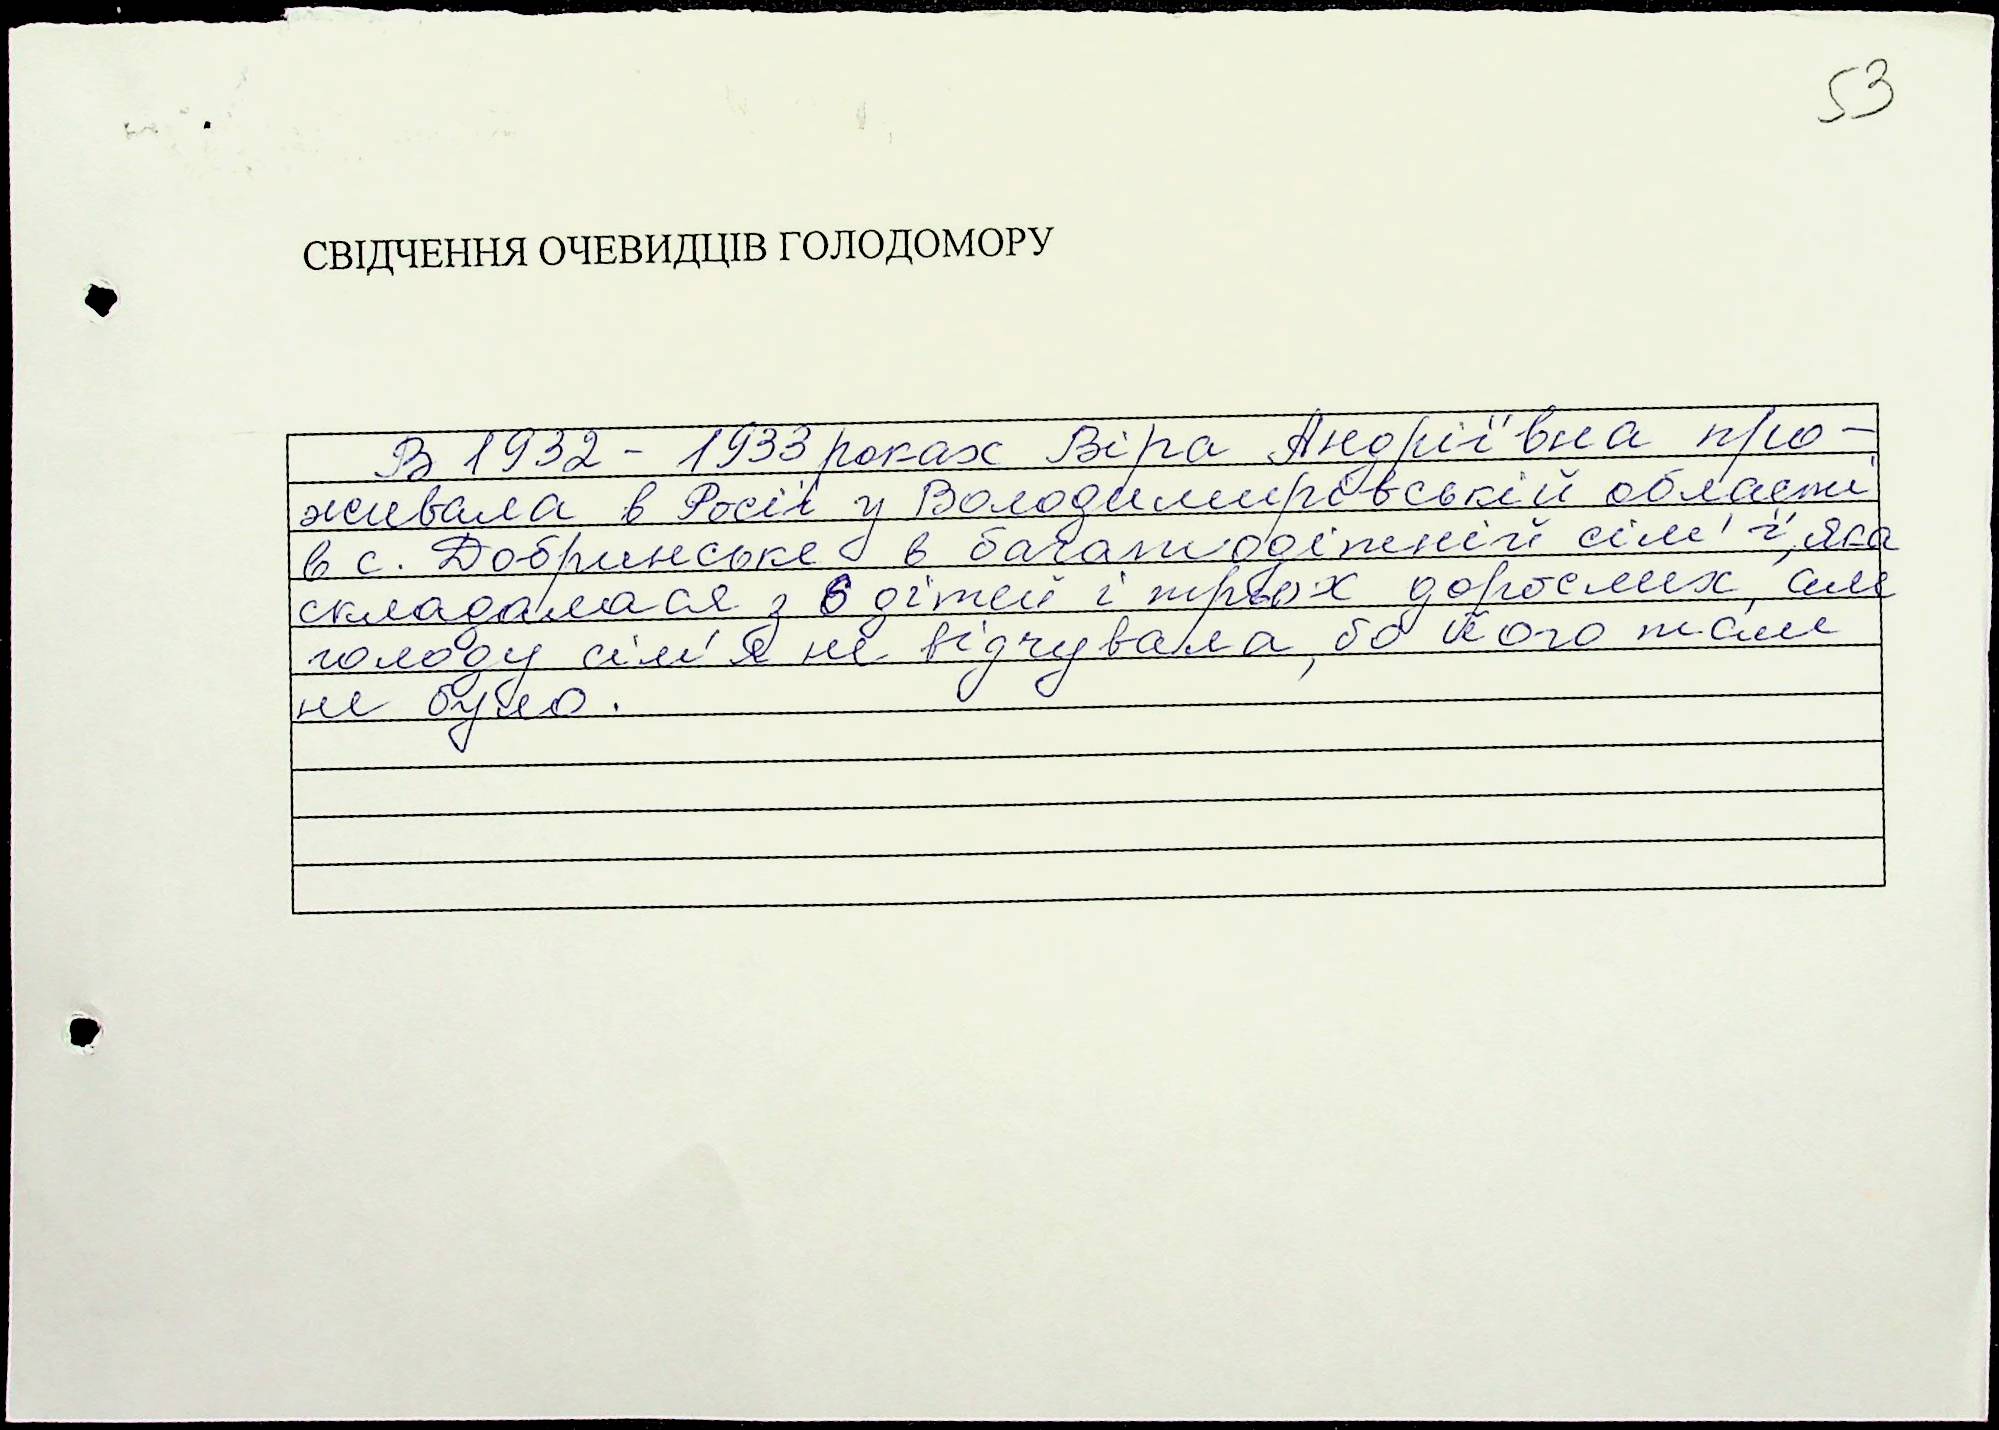 53
СВІДЧЕННЯ ОЧЕВИДЦІВ ГОЛОДОМОРУ
В 1932 - 1933 роках Віра Андріївна про-
живала в Росії у Володимирівській області
в с. Добринське в багатодітній сім'ї, яка
складалася з 6 дітей і трьох дорослих, але
голоду сім'я не відчувала, бо його там
не було.